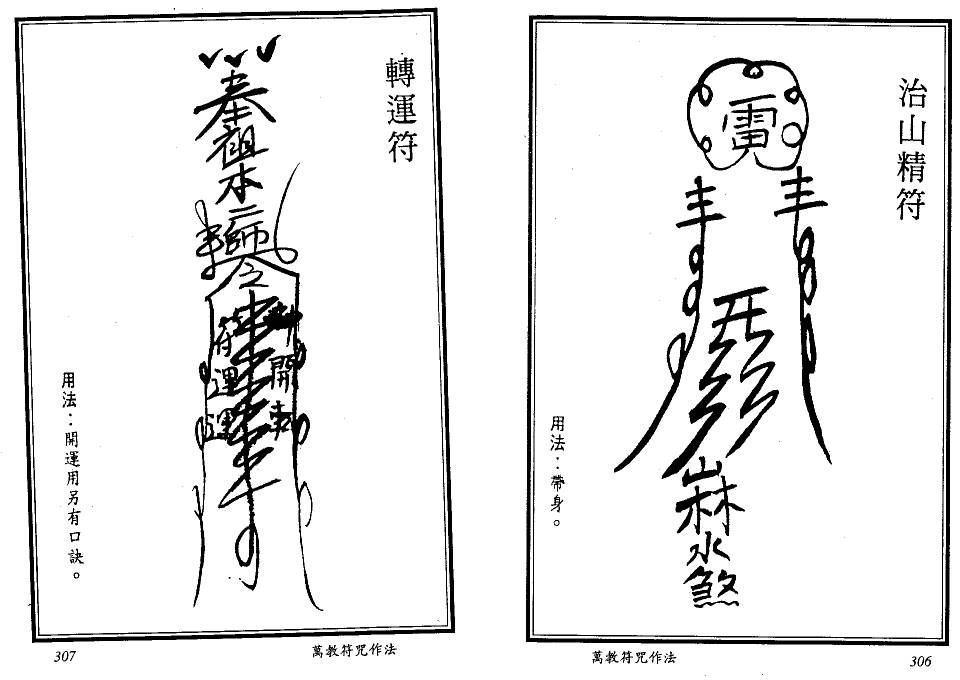 治山精符
雷
山林水煞
用法：帶身。
萬教符咒作法
306
轉運符
奉祖本二師
開
符運運
用法：開運用另有口訣。
萬教符咒作法
307